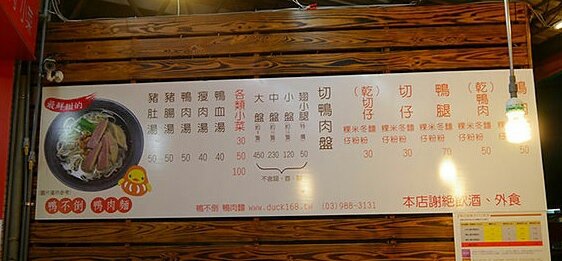 鴨
(乾)鴨肉
粿米冬麵
仔粉粉
50
鴨腿
粿米冬麵
仔粉粉
70
切仔
粿米冬麵
仔粉粉
30
(乾)切仔
粿米冬麵
仔粉粉
30
切鴨肉盤
翅小腿
50
小盤
120
中盤
230
大盤
450
各類小菜
30
50
100
鴨血湯
40
瘦肉湯
40
鴨肉湯
50
豬腸湯
50
豬肚湯
50
最鮮甜的
圖片僅參考!
鴨不倒 鴨肉麵
鴨不倒 鴨肉麵 www.duck168.tw (03)988-3131
本店謝絕飲酒、外食